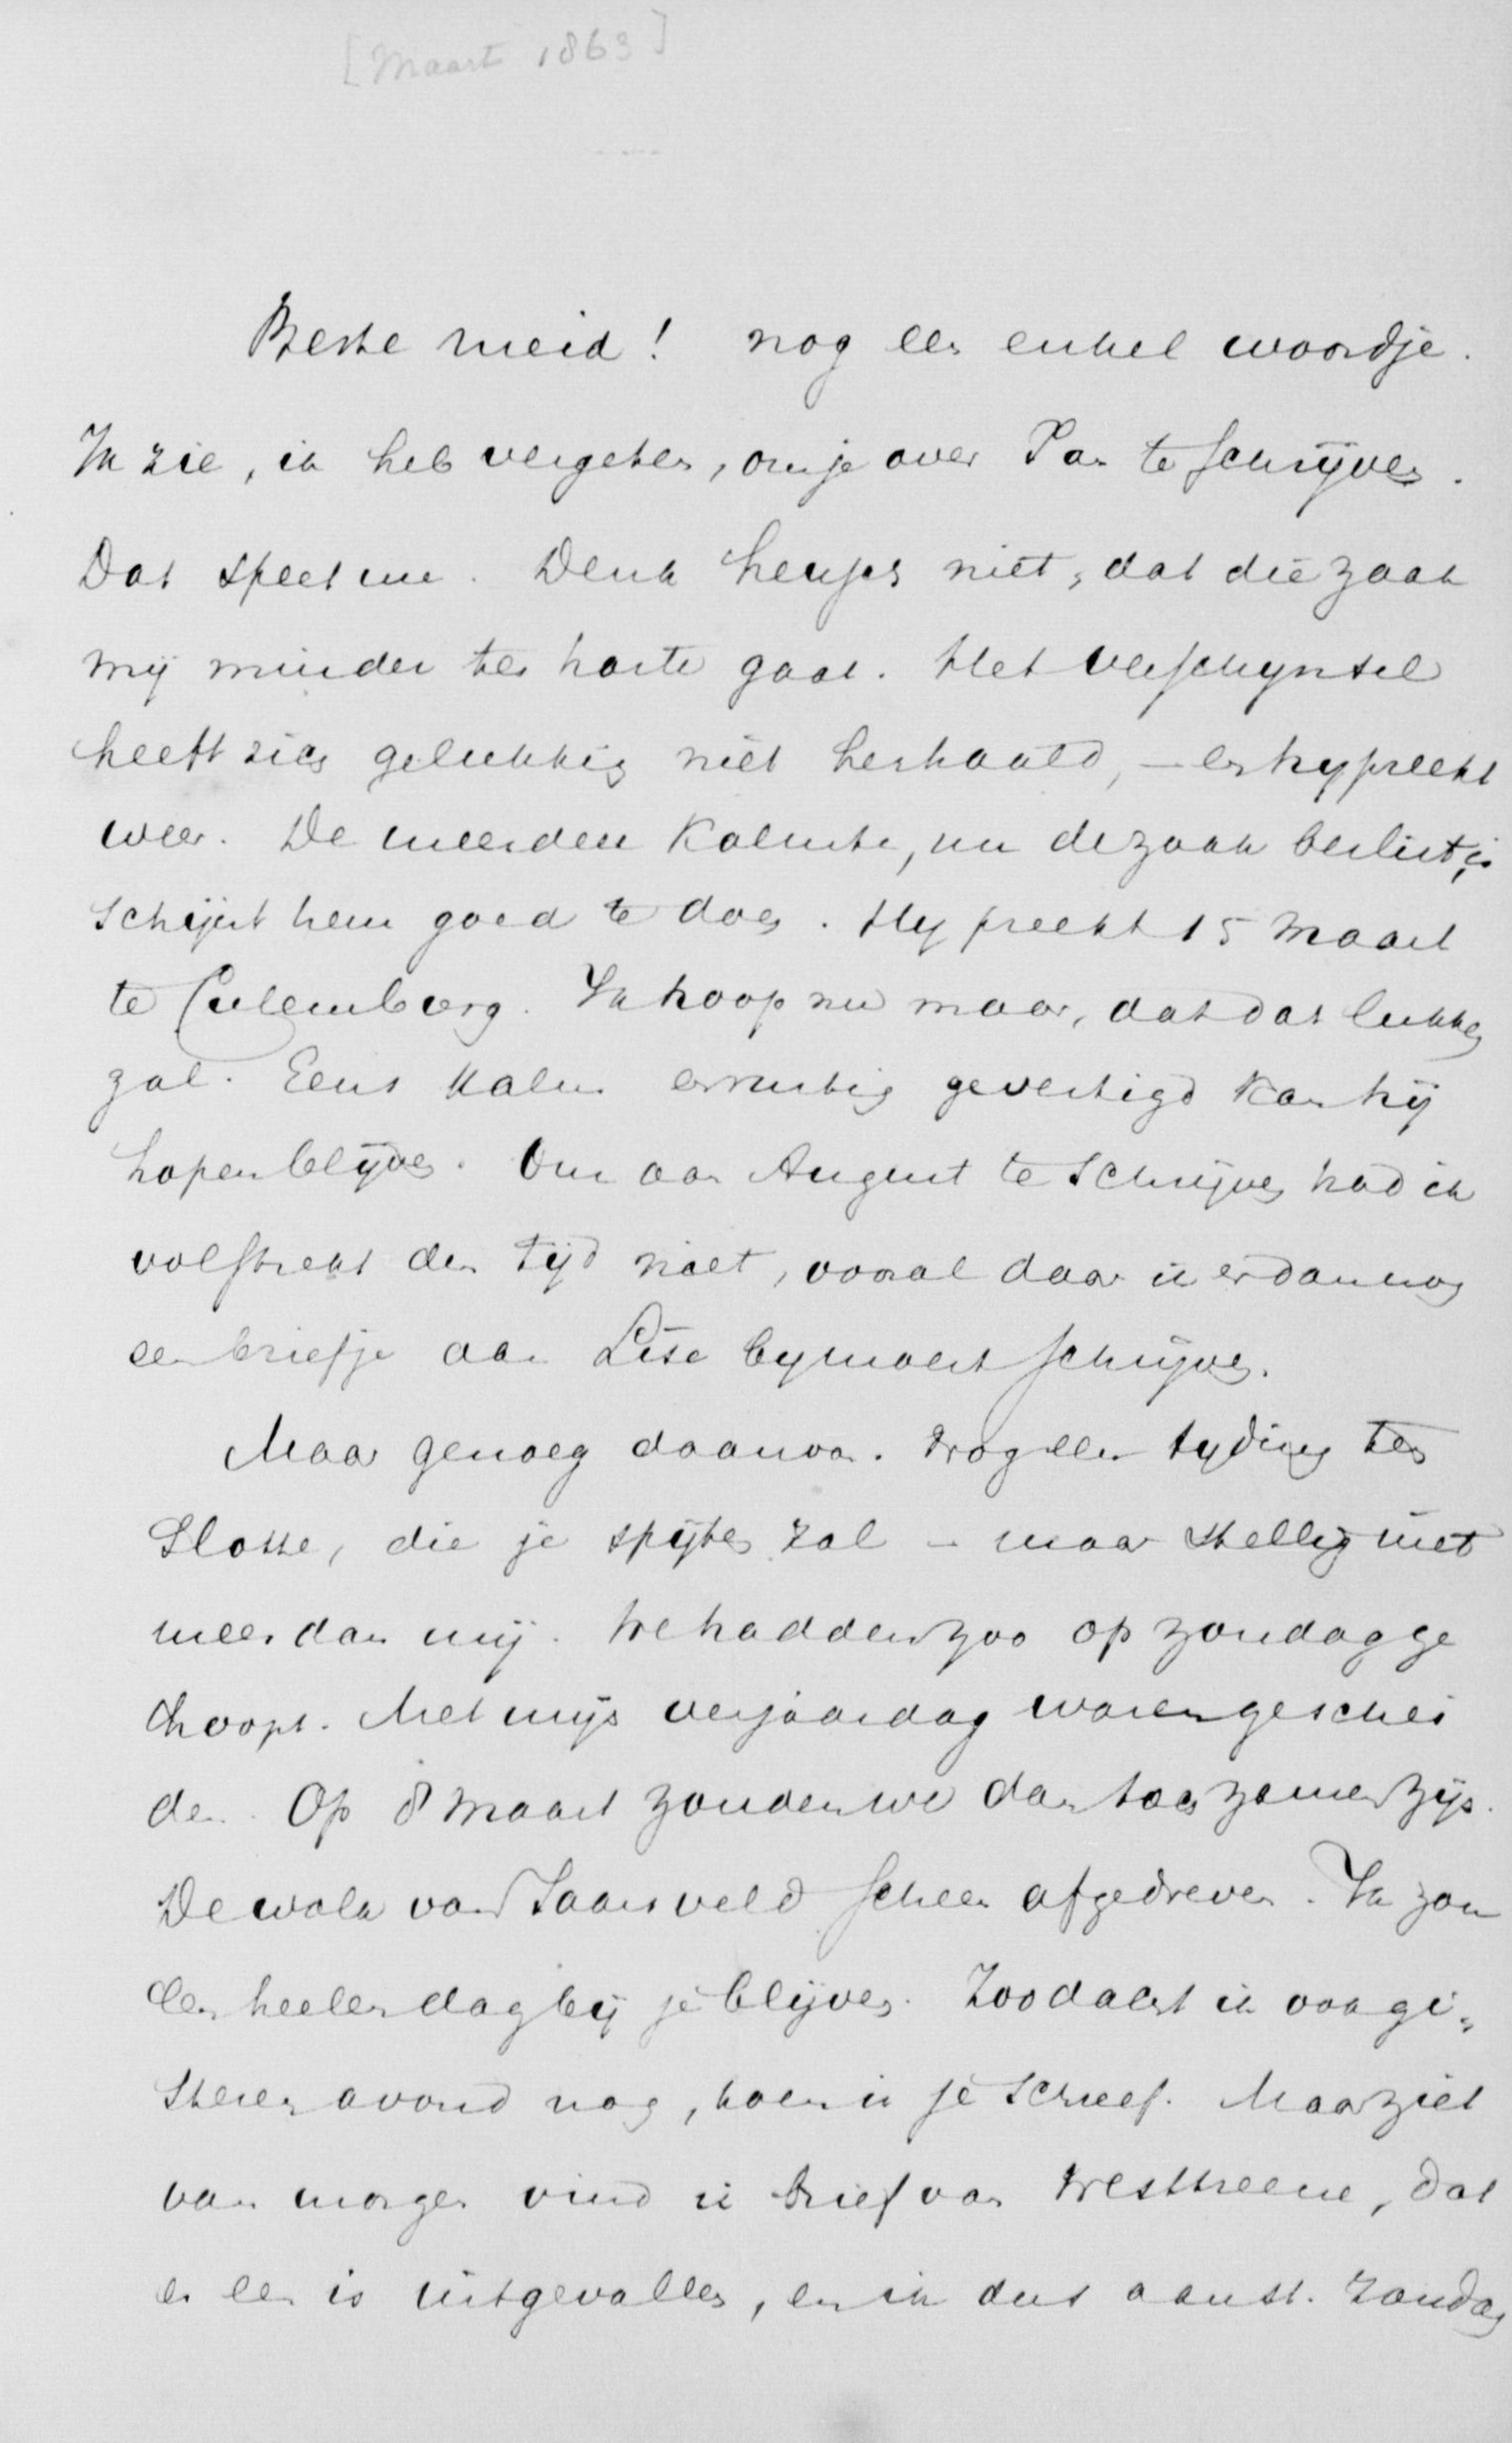 [Maart 1863]
Beste meid! nog een enkel woordje.
Ik zie, ik heb vergeten, om je over Pan te schrijven.
Dat speet me. Denk heusch niet, dat die zaak
mij minder ter harte gaat. Het verschynsel
heeft zich gelukkig niet herhaald, – en hy preekt
weer. De meerdere kalmte, nu de zaak beslist is,
schijnt hem goed te doen. Hy preekt 15 Maart
te Culemborg. Ik hoop nu maar, dat dat lukken
zal. Eens kalm en rustig gevestigd kan hij
hopen blijven. Om aan August te schrijven had ik
volstrekt den tijd niet, vooral daar ik er dan nog
een briefje aan Lise by moest schrijven.
Maar genoeg daarvan. Nog een tyding ten
Slotte, die je spijten zal – maar stellig niet
meer dan mij. We hadden zoo op Zondag ge
hoopt. Met mijn verjaardag waren geschei
den. Op 8 Maart zouden we dan toch zamen zijn.
De wolk van Jaarsveld scheen afgedreven. Ik zou
den heelen dag bij je blijven. Zoo dacht ik ook gi„
steren avond nog, toen ik je schreef. Maar ziet
van morgen vind ik brief van Westhreene, dat
er een is uitgevallen, en ik dus aanst. Zondag